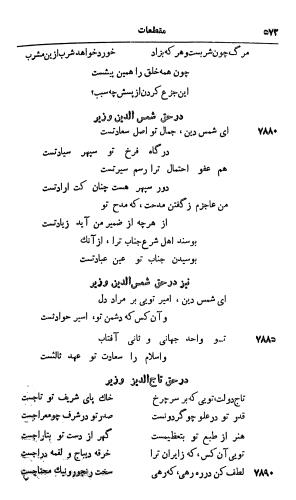 ۵۷۳ مقطعات
مرگ چون شربست و هر که بزاد خورد خواهد شرب از ین مشرب
چون همه خلق را همین پیشست
این جزع کردن از پیش چه سبب؟
در حق شمس الدین وزیر
۷۸۸۰ ای شمس دین، جمال تو اصل سعادتست
درگاه فرخ تو سپهر سیادتست
هم عفو احتمال ترا رسم سیرتست
دور سپهر هست چنان کت ارادتست
من عاجزم ز گفتن مدحت، که مدح تو
از هر چه از ضمیر من آید زیادتست
بوسند اهل شرع جناب ترا، از آنك
بوسیدن جناب تو عین عبادتست
نیز در حق شمس الدین وزیر
ای شمس دین، امیر تویی بر مراد دل
و آن کس که دشمن تو، اسیر حوادثست
۷۸۸۵ تو واحد جهانی و ثانی آفتاب
و اسلام را سعادت تو عهد ثالثست
در حق تاج الدین وزیر
تاج دولت، تویی که بر سر چرخ خاك پای شریف تو تاجست
قدر تو در علو چو گردونست صدر تو در شرف چو معراجست
هنر از طبع تو بتعظیمست گهر از دست تو بتاراجست
تویی آن کس، که زایران ترا خرقه دیباج و لقمه دراجست
۷۸۹۰ لطف کن در ره رهی، که رهی سخت رنجور و نیك محتاجست